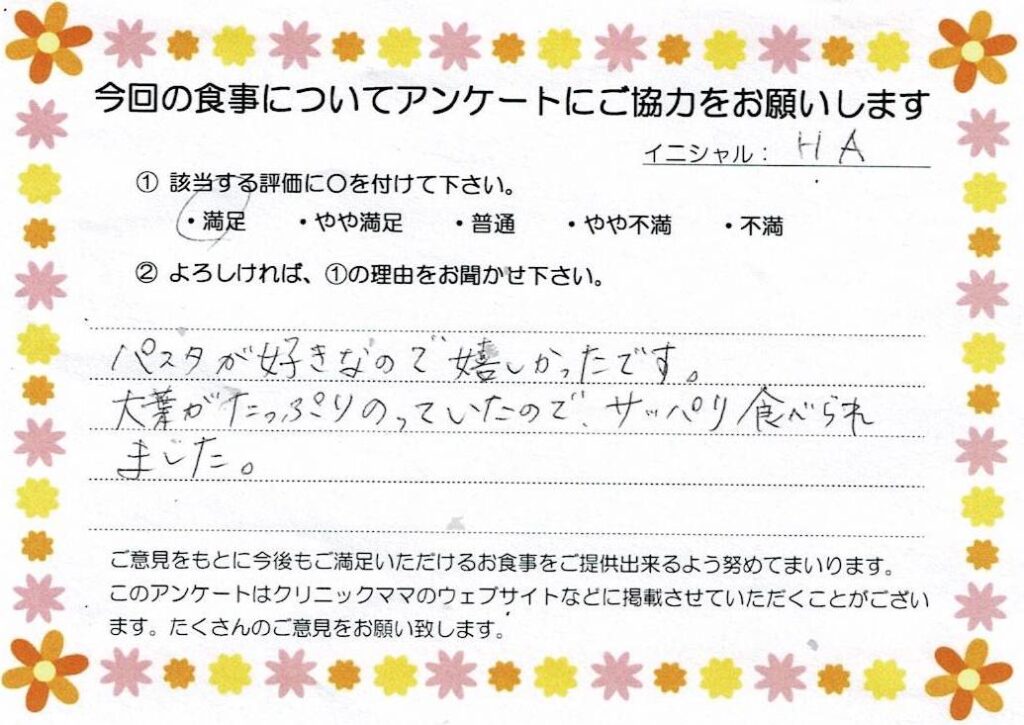 今回の食事についてアンケートにご協力をお願いします
イニシャル： H A
① 該当する評価に〇を付けて下さい。
・満足 ・やや満足 ・普通 ・やや不満 ・不満
② よろしければ、①の理由をお聞かせ下さい。
パスタが好きなので嬉しかったです。
大葉がたっぷりのっていたので、サッパリ食べられ
ました。
ご意見をもとに今後もご満足いただけるお食事をご提供出来るよう努めてまいります。
このアンケートはクリニックママのウェブサイトなどに掲載させていただくことがござい
ます。たくさんのご意見をお願い致します。